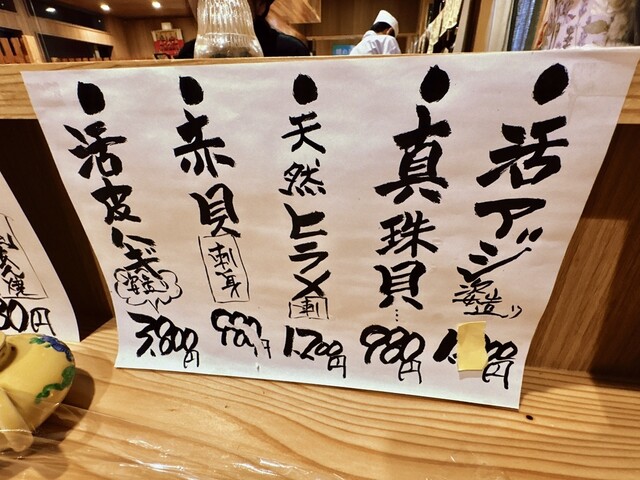 活アジ 姿造り
円
真珠貝…
980円
天然ヒラメ 刺
1,200円
赤貝 刺身
円
活皮ハギ 姿造
3,800円
焼
80円